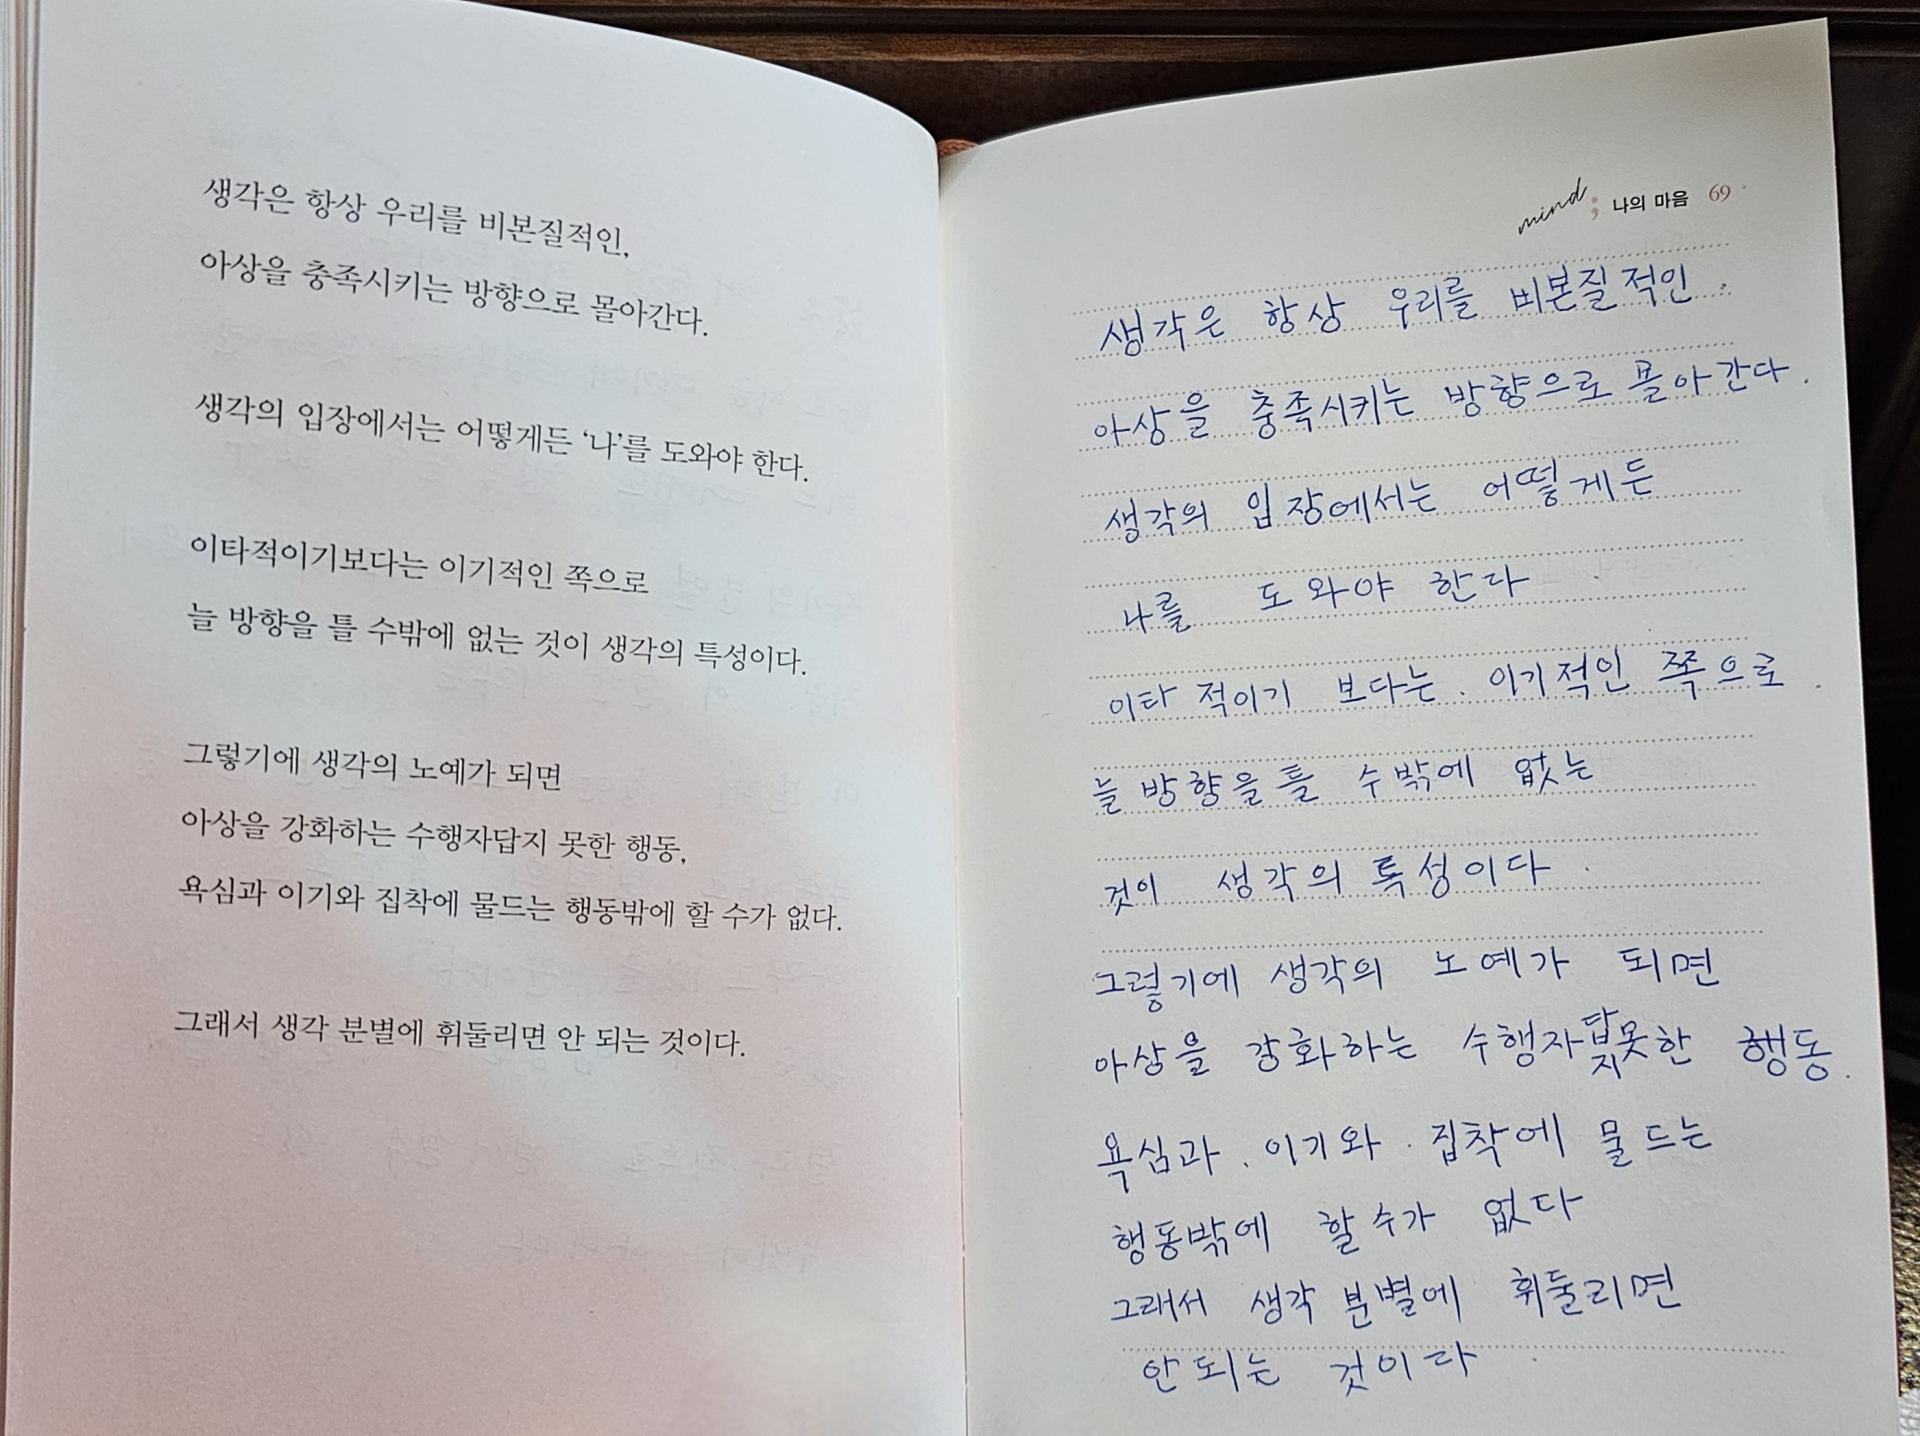 생각은 항상 우리를 비본질적인,
아상을 충족시키는 방향으로 몰아간다.
생각의 입장에서는 어떻게든 ‘나’를 도와야 한다.
이타적이기보다는 이기적인 쪽으로
늘 방향을 틀 수밖에 없는 것이 생각의 특성이다.
그렇기에 생각의 노예가 되면
아상을 강화하는 수행자답지 못한 행동,
욕심과 이기와 집착에 물드는 행동밖에 할 수가 없다.
그래서 생각 분별에 휘둘리면 안 되는 것이다.
mind ; 나의 마음 69
생각은 항상 우리를 비본질적인
아상을 충족시키는 방향으로 몰아간다.
생각의 입장에서는 어떻게든
나를 도와야 한다
이타적이기 보다는 이기적인 쪽으로
늘 방향을 틀 수밖에 없는
것이 생각의 특성이다
그렇기에 생각의 노예가 되면
아상을 강화하는 수행자답지못한 행동
욕심과 이기와 집착에 물드는
행동밖에 할수가 없다
그래서 생각 분별에 휘둘리면
안되는 것이다